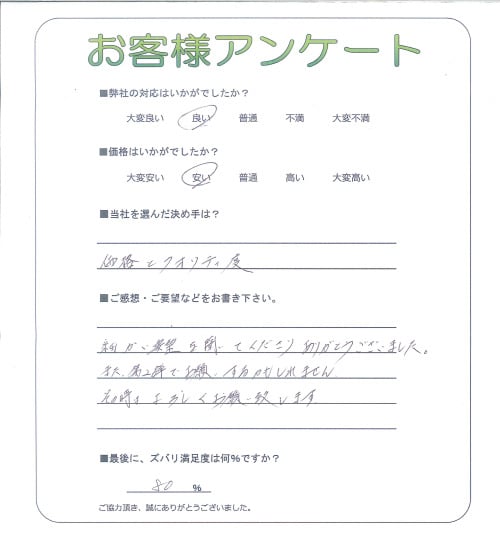 お客様アンケート
■弊社の対応はいかがでしたか？
大変良い 良い 普通 不満 大変不満
■価格はいかがでしたか？
大変安い 安い 普通 高い 大変高い
■当社を選んだ決め手は？
価格とクオリティ度
■ご感想・ご要望などをお書き下さい。
細かい要望を聞いてくださりありがとうございました。
また、第2弾でお願いするかもしれません
その時はよろしくお願い致します
■最後に、ズバリ満足度は何％ですか？
80 ％
ご協力頂き、誠にありがとうございました。